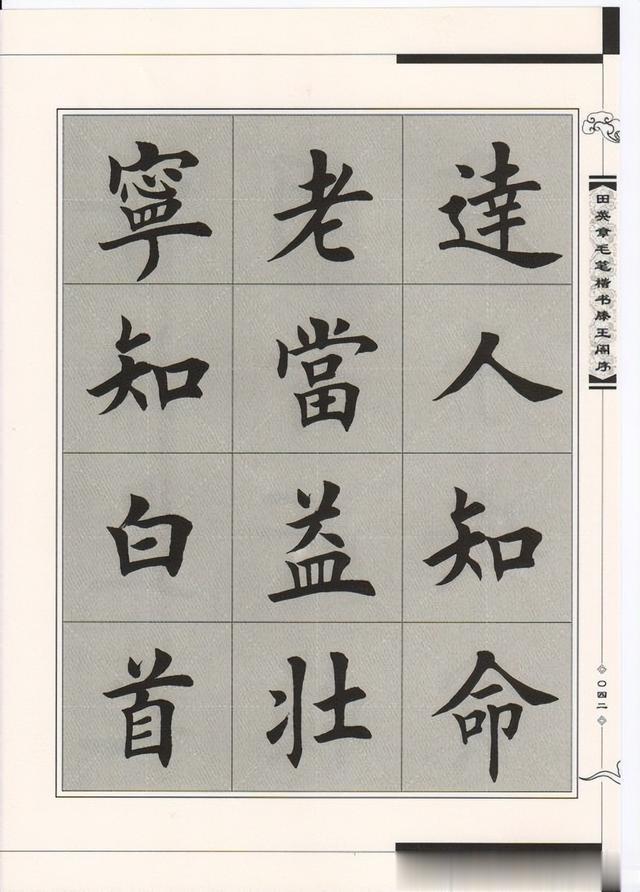 達人知命
老當益壯
寧知白首
田英章毛笔楷书滕王阁序
〇四二